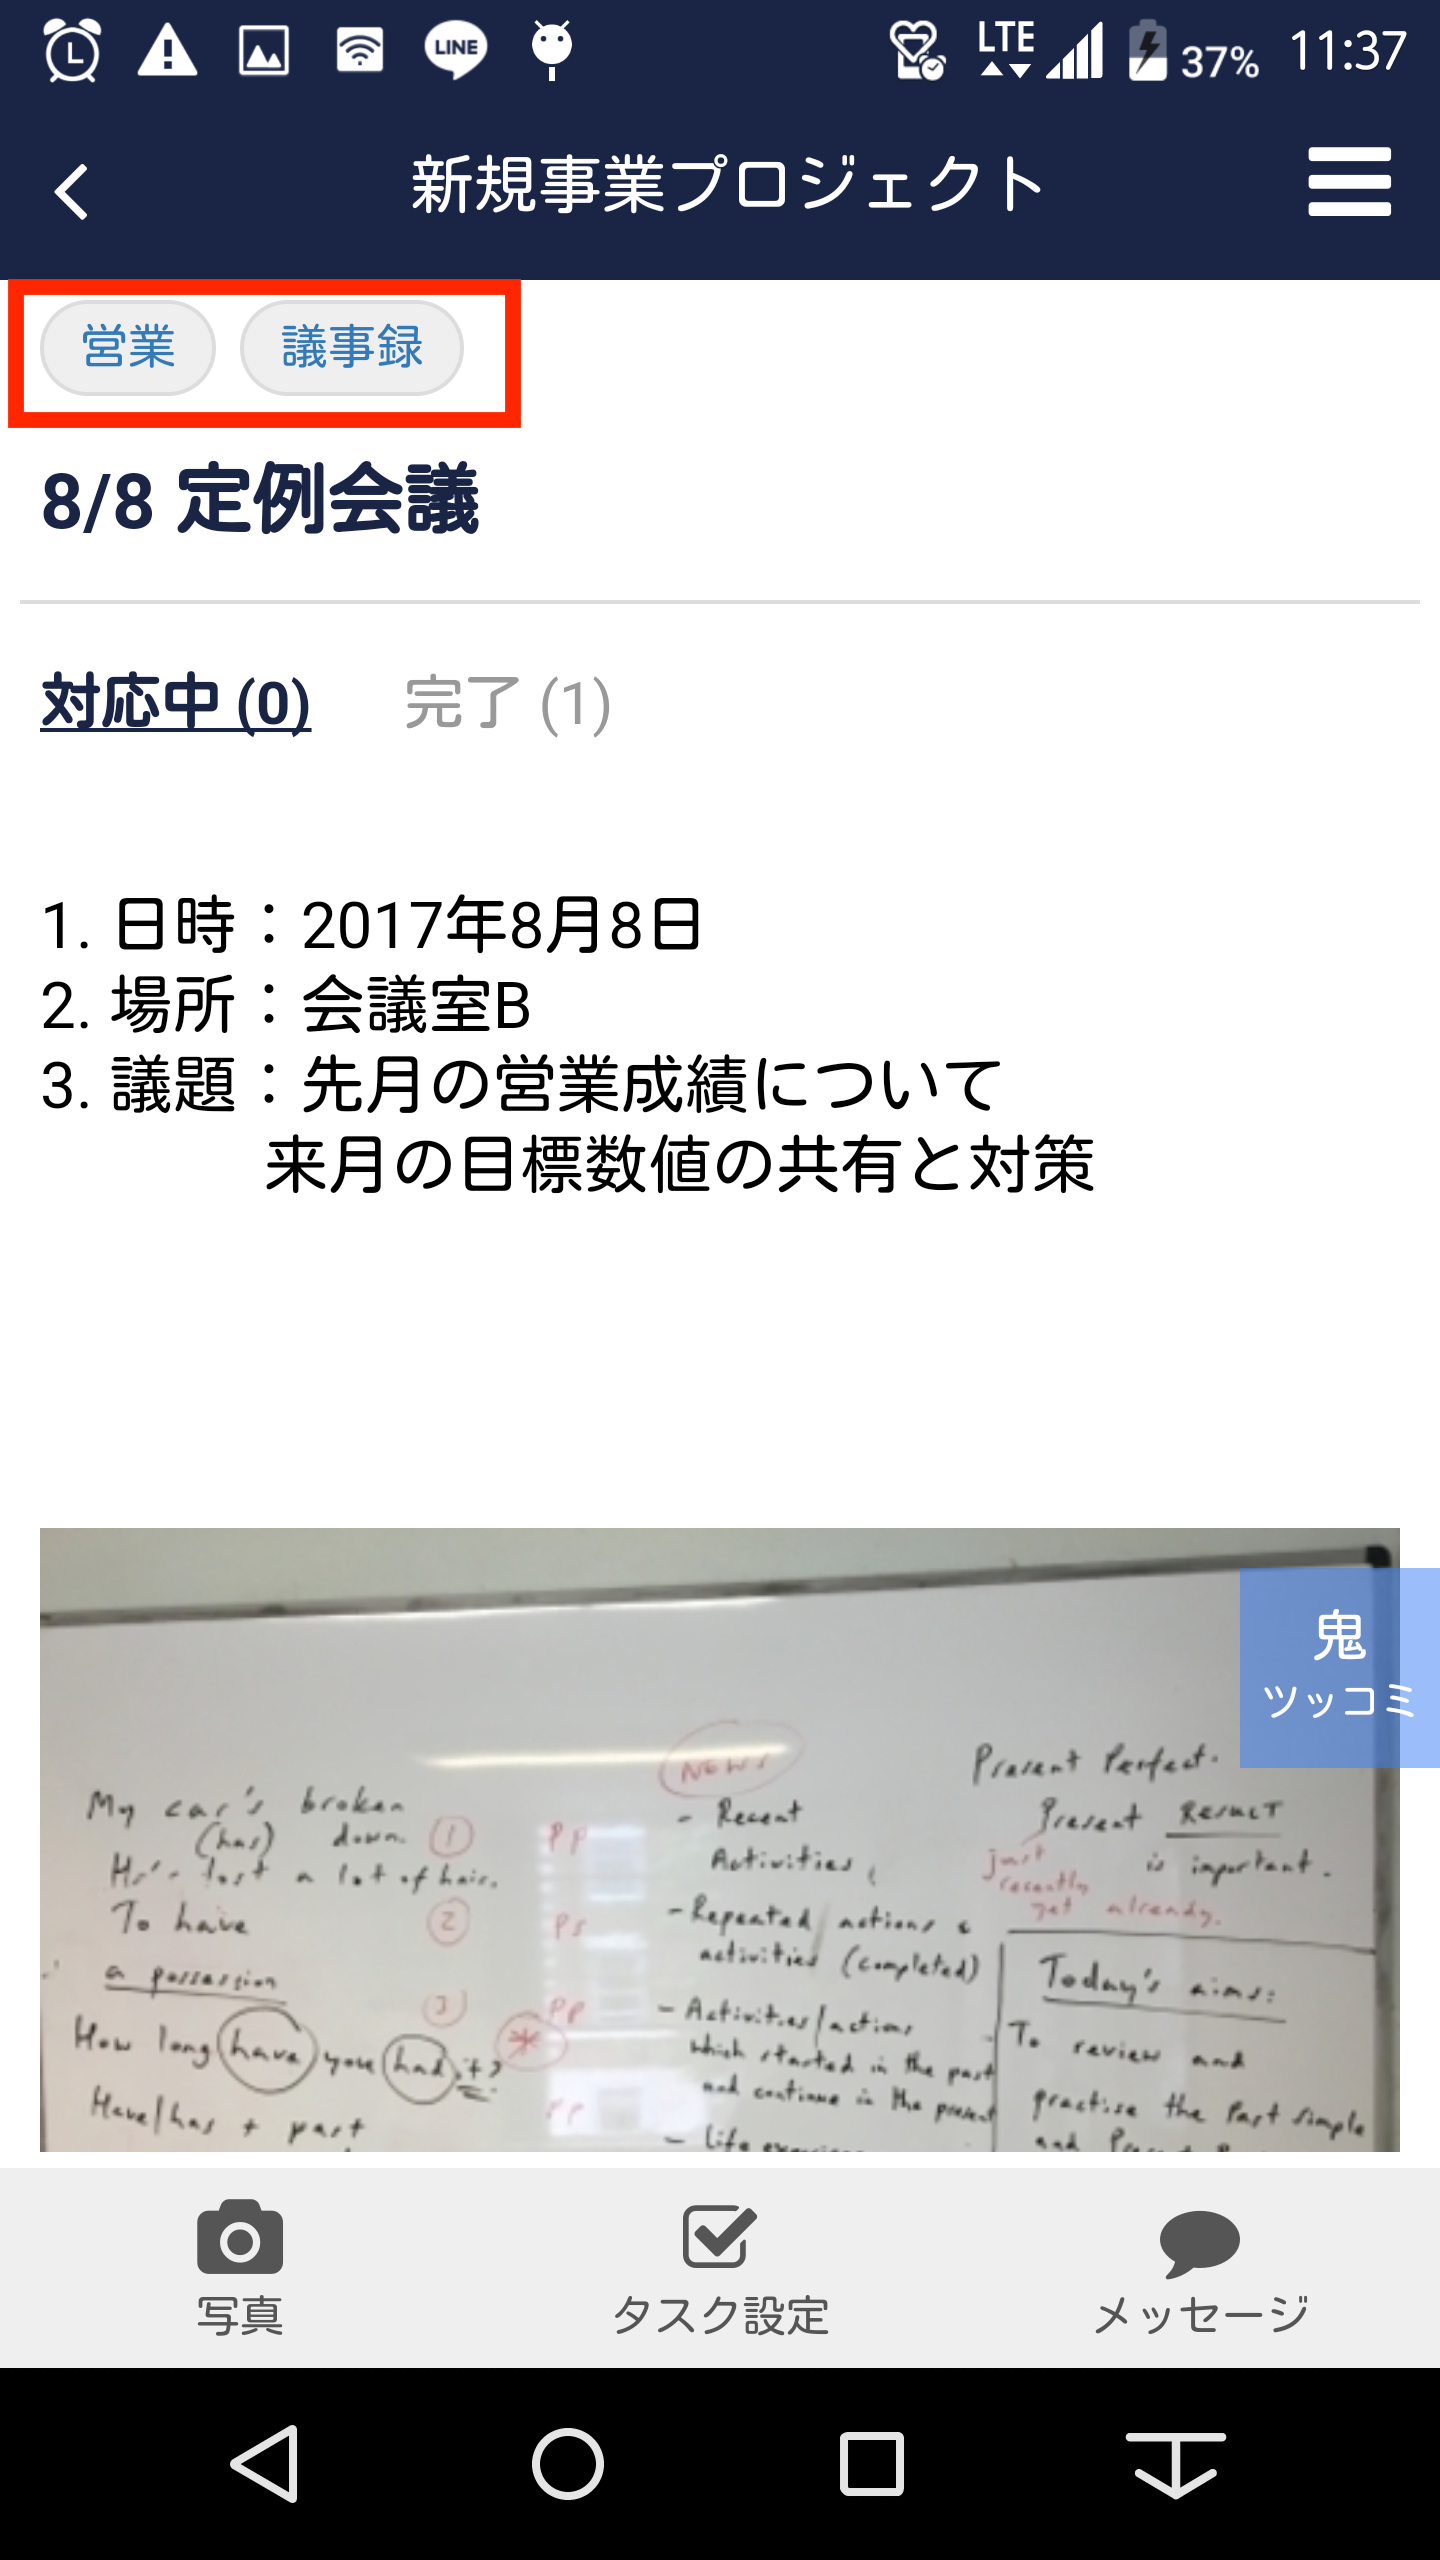 LINE
LTE
37%
11:37
新規事業プロジェクト
営業
議事録
8/8 定例会議
対応中 (0)
完了 (1)
1. 日時：2017年8月8日
2. 場所：会議室B
3. 議題：先月の営業成績について
来月の目標数値の共有と対策
鬼
ツッコミ
My car's broken
(has) down.
He's lost a lot of hair.
To have
a possession
How long have you had it?
Have/has + past
1
PP
2
PS
3
PP
*
PP
NEWS
- Recent
Activities
- Repeated actions &
activities (completed)
- Activities/actions
which started in the past
and continue in the present
- Life
Present Perfect.
Present RESULT
is important.
just
recently
yet already.
Today's aims:
To review and
practise the Past Simple
and
写真
タスク設定
メッセージ